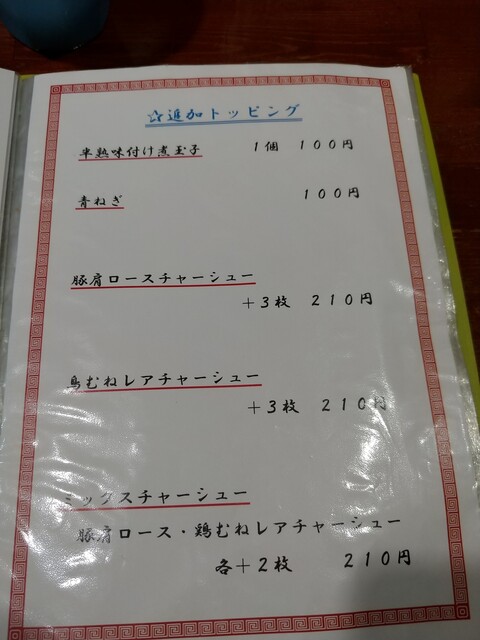 ☆追加トッピング
半熟味付け煮玉子　1個　100円
青ねぎ　100円
豚肩ロースチャーシュー
＋3枚　210円
鳥むねレアチャーシュー
＋3枚　210円
ミックスチャーシュー
豚肩ロース・鶏むねレアチャーシュー
各＋2枚　210円